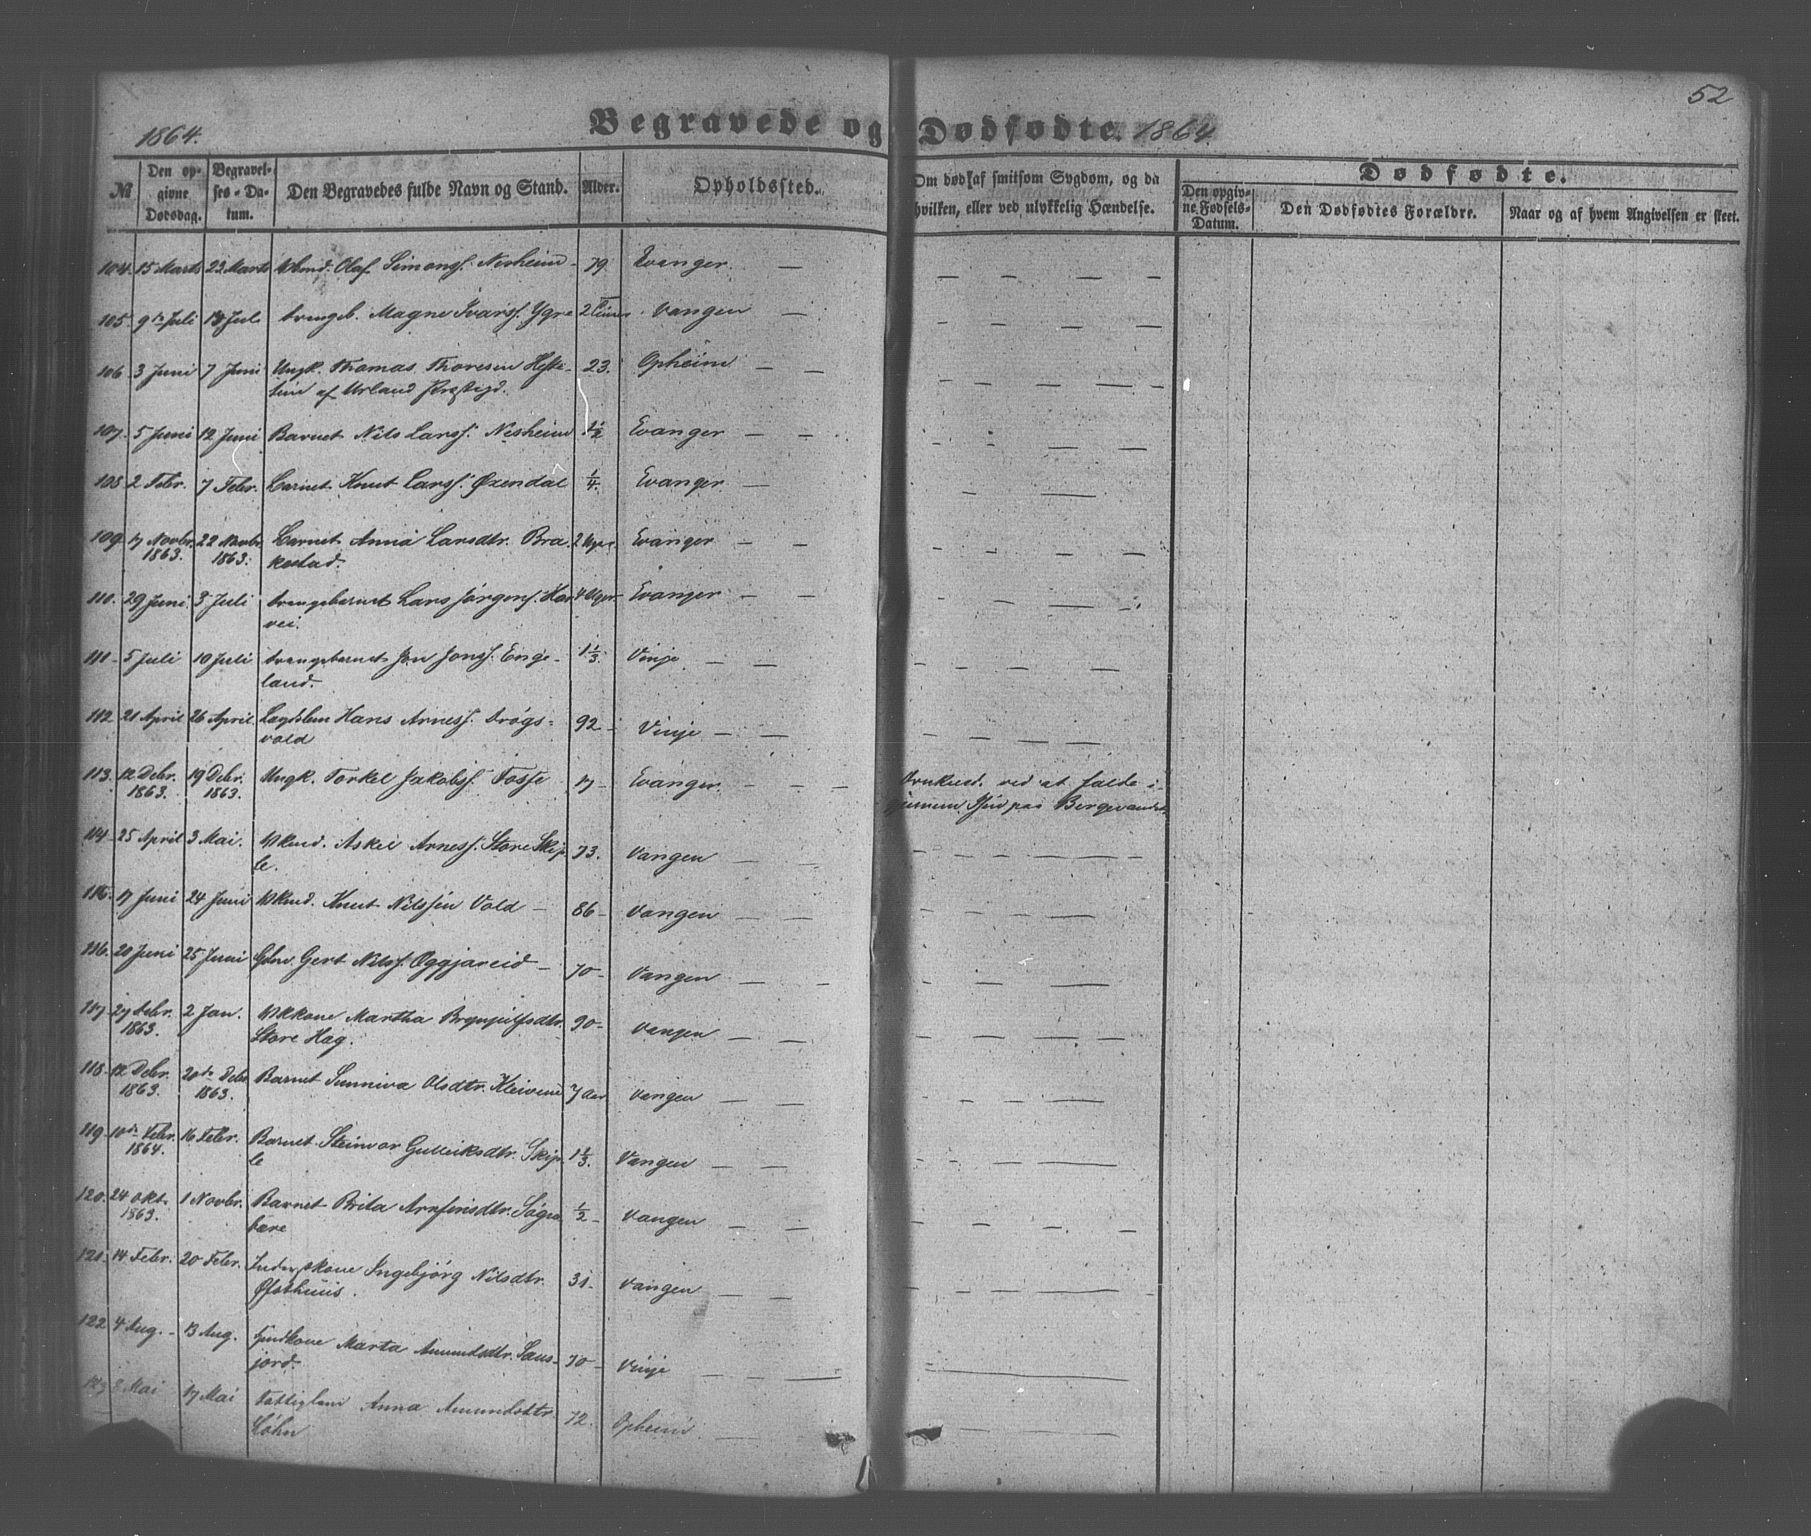 52
1864.
Begravede og Dødfødte. 1864
№
Den opgivne Dødsdag.
Begravelses-Datum.
Den Begravedes fulde Navn og Stand.
Alder.
Opholdssted.
Om død af smitsom Sygdom, og da
hvilken, eller ved ulykkelig Hændelse.
Dødfødte.
Den opgivne Fødsels-Datum.
Den Dødfødtes Forældre.
Naar og af hvem Angivelsen er skeet.
104. 15 Marts 23 Marts Olaf Simonsf. Nesheim - 79. Evanger. —
105. 9de Juli Juli Magne Ivarsf. Ygre 2 Vangen —
106 3 Juni 7 Juni Ungk. Thomas Thoresen Hefte- 23. Opheim — —
af Urland Præstegd.
107. 5 Juni 12 Juni Barnet Nils Larsf. Nesheim ½ Evanger — —
108 2 Febr. 7 Febr. Barnet Knut Larsf. Øxendal ¼. Evanger. —
109. 17 Novbr. 22 Novbr. Barnet Anna Larsdtr. Bra- 2 Uger Evanger — —
1863. 1863. kestad.
110. 29 Juni. 3 Juli Lars Jørgensf. Hor- 4 Uger Evanger — —
vei.
111- 5 Juli 10 Juli Jon Jonsf. Enge- 1⅓. Vinje — —
land.
112. 21 April 26 April Lægdslem Hans Arnesf. Drøgs- 92- Vinje — —
vold
113. 12 Debr. 19 Debr. Ungk. Torkel Jakobsf. Fosse 17- Evanger. — — Drukned. ved at falde i-
1863. 1863. gjennem Isen paa Bergevandet.
114. 25 April 3 Mai. Askel Arnesf. Store Skip- 73. Vangen — —
le.
115. 17 Juni 24 Juni Knut Nilssen Vold — 86- Vangen — —
116. 20 Juni 25 Juni Gert Nilsf. Oggjareid — 70- Vangen — —
117. 27 Debr. 2 Jan. Martha Brynjulfsdtr. 90- Vangen — —
1863. Store Hag.
118- 12 Debr. 20de Debr. Barnet Sunniva Olsdtr. Kleivene 7 Aar Vangen — —
1863. 1863.
119. 10de Febr. 16 Febr. Barnet Steinvor Gulleiksdtr. Skip- 1⅓. Vangen — —
1864. le
120. 24 Okt. 1 Novbr. Barnet Brita Arnfinsdtr. ½- Vangen — —
1863.
121. 14 Febr. 20 Febr. Inderstkone Ingebjørg Nilsdtr. 31- Vangen — —
Øfsthuus.
122 4 Aug. - 13 Aug. Marta Amundsdtr. Saus- 70- Vinje — —
jord.
123 8 Mai 17 Mai Fattiglem Anna Amundsdtr. 72. Opheim —